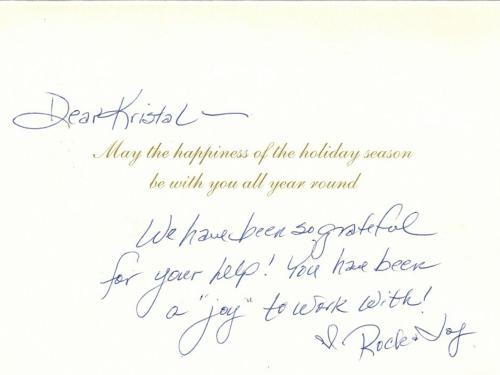 Dear Kristal —
May the happiness of the holiday season
be with you all year round
We have been so grateful
for your help! You have been
a "joy" to work with!
Rock & Joy